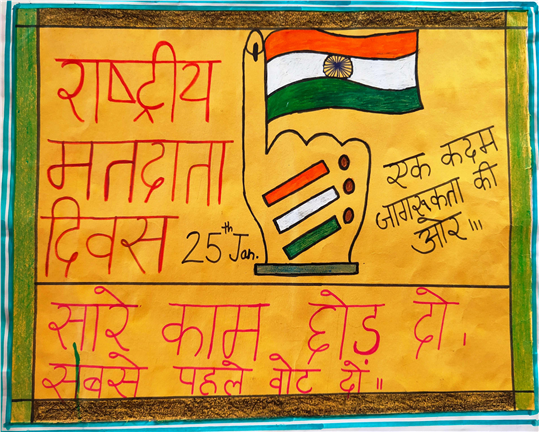 राष्ट्रीय
मतदाता
दिवस 25th Jan.
एक कदम
जागरूकता की
ओर ।।।
सारे काम छोड़ दो ।
सबसे पहले वोट दों ॥